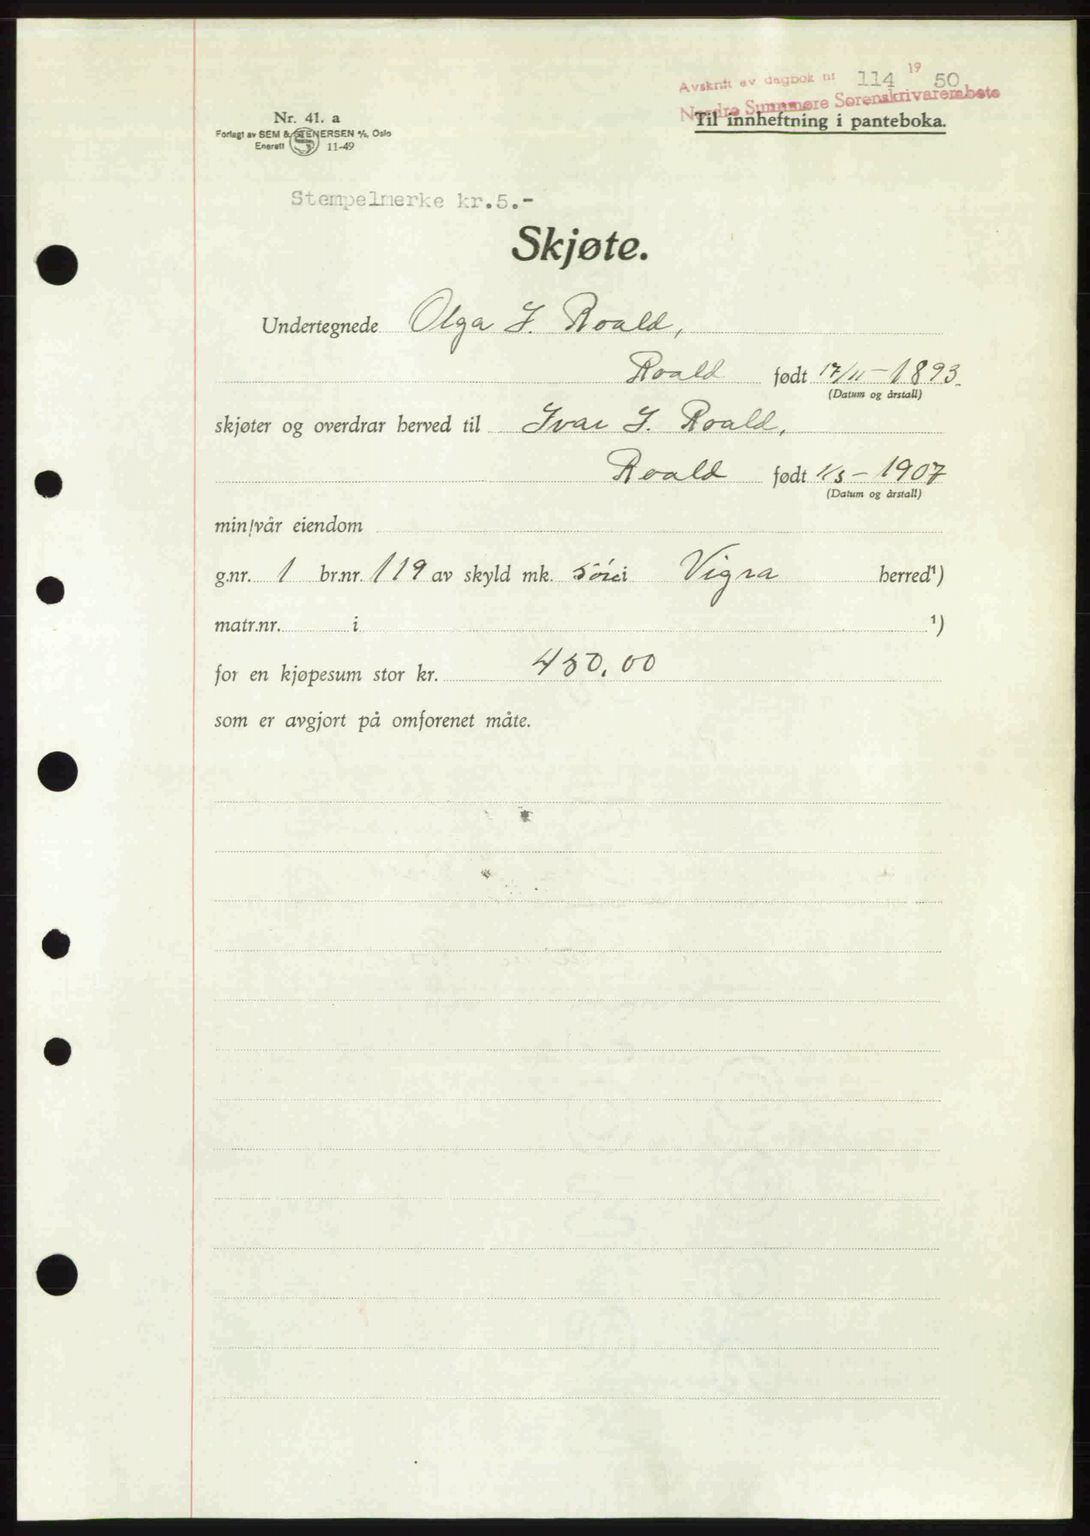 Avskrift av dagbok nr 114 1950
Nordre Sunnmøre Sorenskriverembete
Til innheftning i panteboka.
Nr. 41. a
Forlagt av SEM & STENERSEN A/S, Oslo
Enerett 11-49
Stempelmerke kr.5.-
Skjøte.
Undertegnede Olga J. Roald,
Roald født 17/11-1893.
(Datum og årstall)
skjøter og overdrar herved til Ivar J. Roald,
Roald født 1/3-1907
(Datum og årstall)
min/vår eiendom
g.nr. 1 br.nr. 119 av skyld mk. 5 øre i Vigra herred¹)
matr.nr. i ¹)
for en kjøpesum stor kr. 450,00
som er avgjort på omforenet måte.